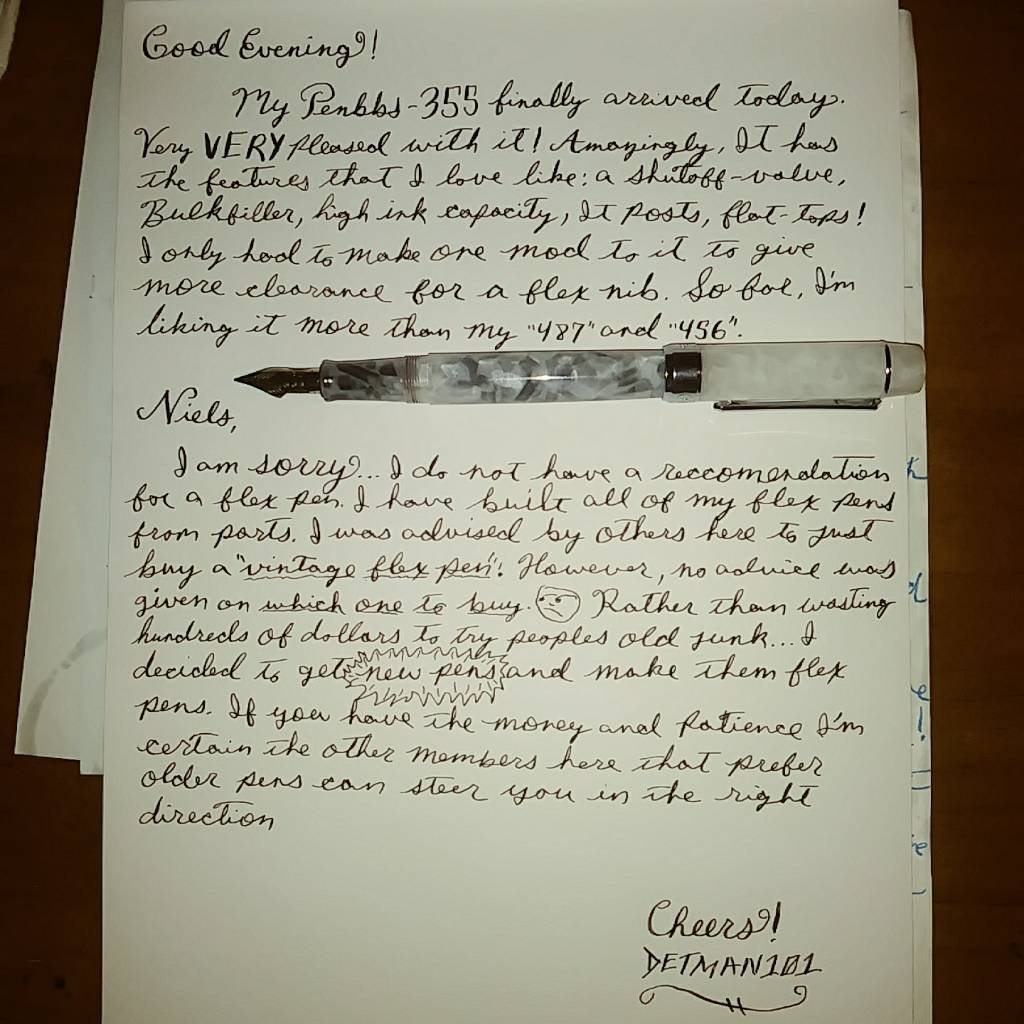 Good Evening!
My Penbbs-355 finally arrived today.
Very VERY pleased with it! Amazingly, It has
the features that I love like: a shutoff-valve,
Bulkfiller, high ink capacity, It posts, flat-tops!
I only had to make one mod to it to give
more clearance for a flex nib. So far, I'm
liking it more than my "487" and "456".
Niels,
I am sorry... I do not have a reccomendation
for a flex pen. I have built all of my flex pens
from parts. I was advised by others here to just
buy a "vintage flex pen"! However, no advice was
given on which one to buy. Rather than wasting
hundreds of dollars to try peoples old junk... I
decided to get new pens and make them flex
pens. If you have the money and patience I'm
certain the other members here that prefer
older pens can steer you in the right
direction
Cheers!
DETMAN101